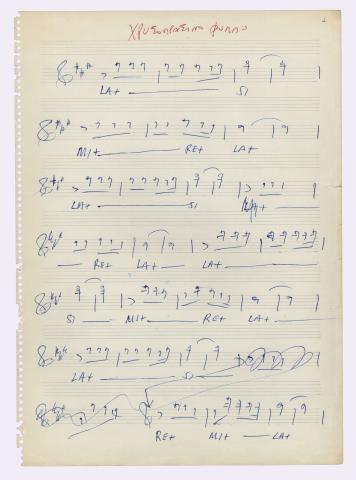 ΧΡΥΣΟΠΡΑΣΙΝΟ ΦΥΛΛΟ
LA+ SI
MI+ RE+ LA+
LA+ SI
RE+ LA+ LA+
SI MI+ RE+ LA+
LA+ SI
RE+ MI+ LA+